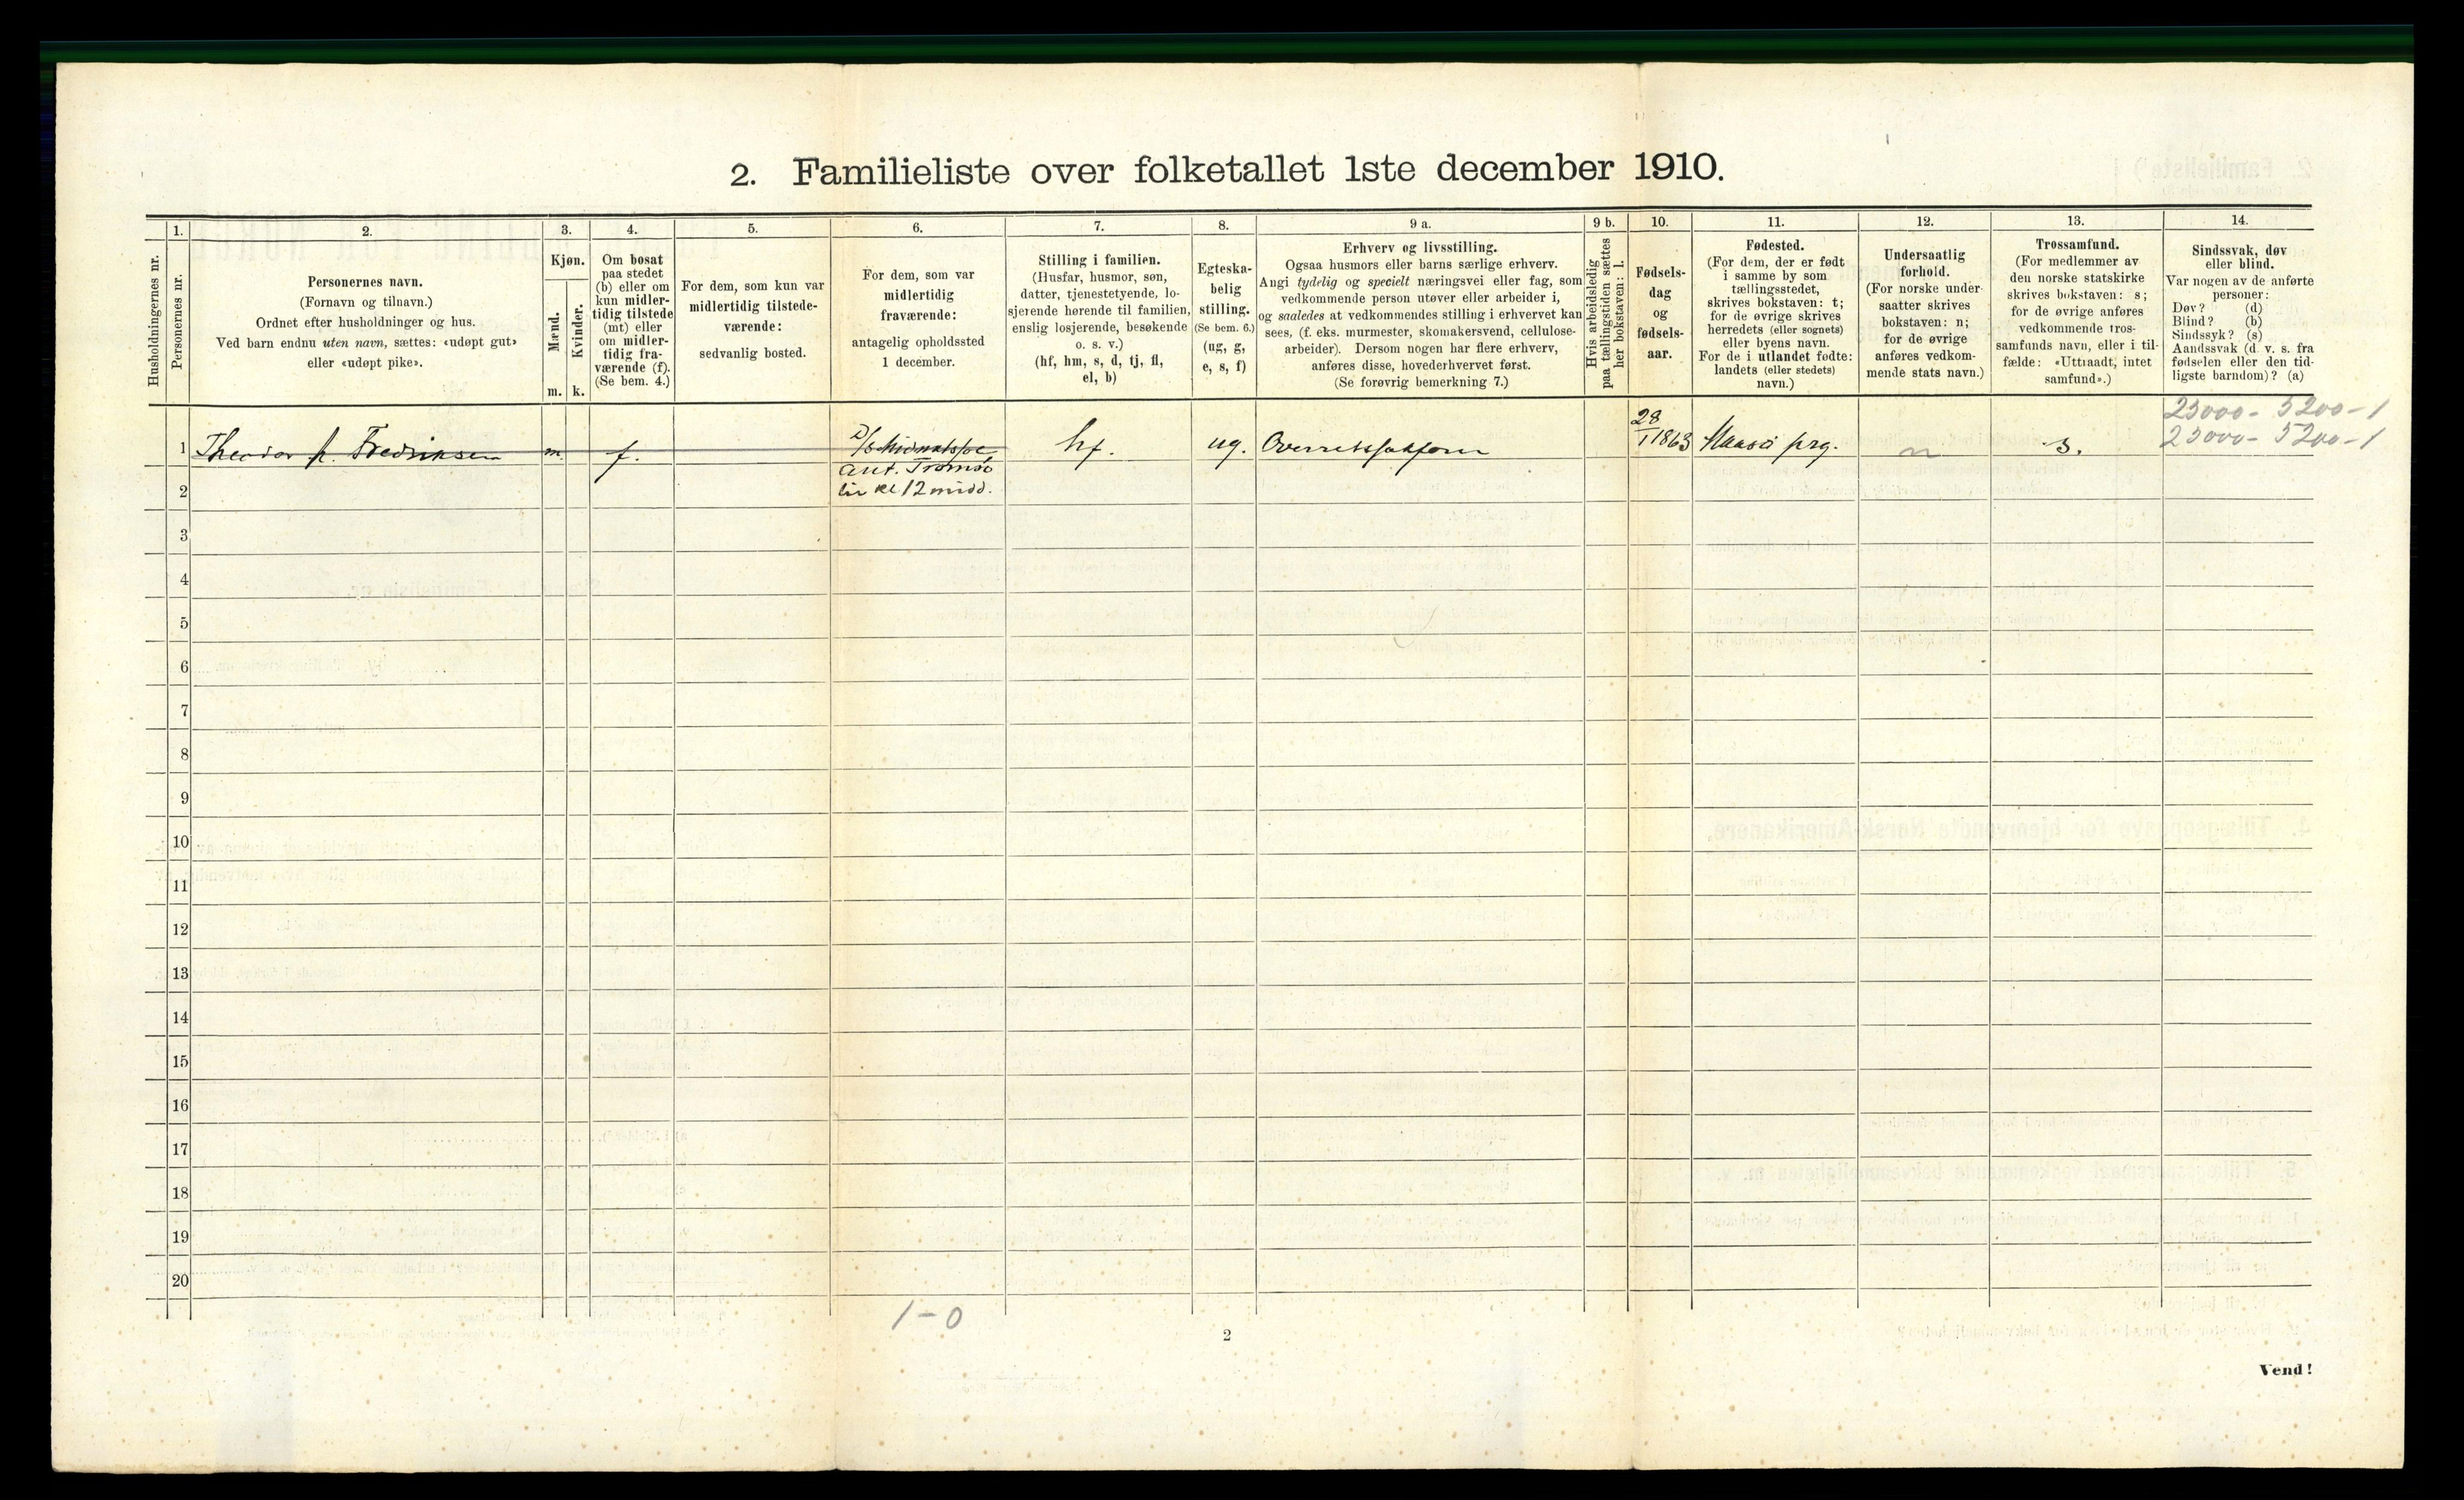 2. Familieliste over folketallet 1ste december 1910.
Husholdningernes nr.
1.
Personernes nr.
2.
Personernes navn.
(Fornavn og tilnavn.)
Ordnet efter husholdninger og hus.
Ved barn endnu uten navn, sættes: «udøpt gut»
eller «udøpt pike».
3.
Kjøn.
Mænd.
Kvinder.
m. k.
4.
Om bosat
paa stedet
(b) eller om
kun midler-
tidig tilstede
(mt) eller
om midler-
tidig fra-
værende (f).
(Se bem. 4.)
5.
For dem, som kun var
midlertidig tilstede-
værende:
sedvanlig bosted.
6.
For dem, som var
midlertidig
fraværende:
antagelig opholdssted
1 december.
7.
Stilling i familien.
(Husfar, husmor, søn,
datter, tjenestetyende, lo-
sjerende hørende til familien,
enslig losjerende, besøkende
o. s. v.)
(hf, hm, s, d, tj, fl,
el, b)
8.
Egteska-
belig
stilling.
(Se bem. 6.)
(ug, g,
e, s, f)
9 a.
Erhverv og livsstilling.
Ogsaa husmors eller barns særlige erhverv.
Angi tydelig og specielt næringsvei eller fag, som
vedkommende person utøver eller arbeider i,
og saaledes at vedkommendes stilling i erhvervet kan
sees, (f. eks. murmester, skomakersvend, cellulose-
arbeider). Dersom nogen har flere erhverv,
anføres disse, hovederhvervet først.
(Se forøvrig bemerkning 7.)
9 b.
Hvis arbeidsledig
paa tællingstiden sættes
her bokstaven: l.
10.
Fødsels-
dag
og
fødsels-
aar.
11.
Fødested.
(For dem, der er født
i samme by som
tællingsstedet,
skrives bokstaven: t;
for de øvrige skrives
herredets (eller sognets)
eller byens navn.
For de i utlandet fødte:
landets (eller stedets)
navn.)
12.
Undersaatlig
forhold.
(For norske under-
saatter skrives
bokstaven: n;
for de øvrige
anføres vedkom-
mende stats navn.)
13.
Trossamfund.
(For medlemmer av
den norske statskirke
skrives bokstaven: s;
for de øvrige anføres
vedkommende tros-
samfunds navn, eller i til-
fælde: «Uttraadt, intet
samfund».)
14.
Sindssvak, døv
eller blind.
Var nogen av de anførte
personer:
Døv? (d)
Blind? (b)
Sindssyk? (s)
Aandssvak (d. v. s. fra
fødselen eller den tid-
ligste barndom)? (a)
23000 - 5200 - 1
1 Theodor Fredriksen m. f. hf. ug. 28/1 1863 Maasö prg. n s. 23000 - 5200 - 1
ant. Tromsö
2 kl 12 midd.
3
4
5
6
7
8
9
10
11
12
13
14
15
16
17
18
19
20
1 - 0
2
Vend!